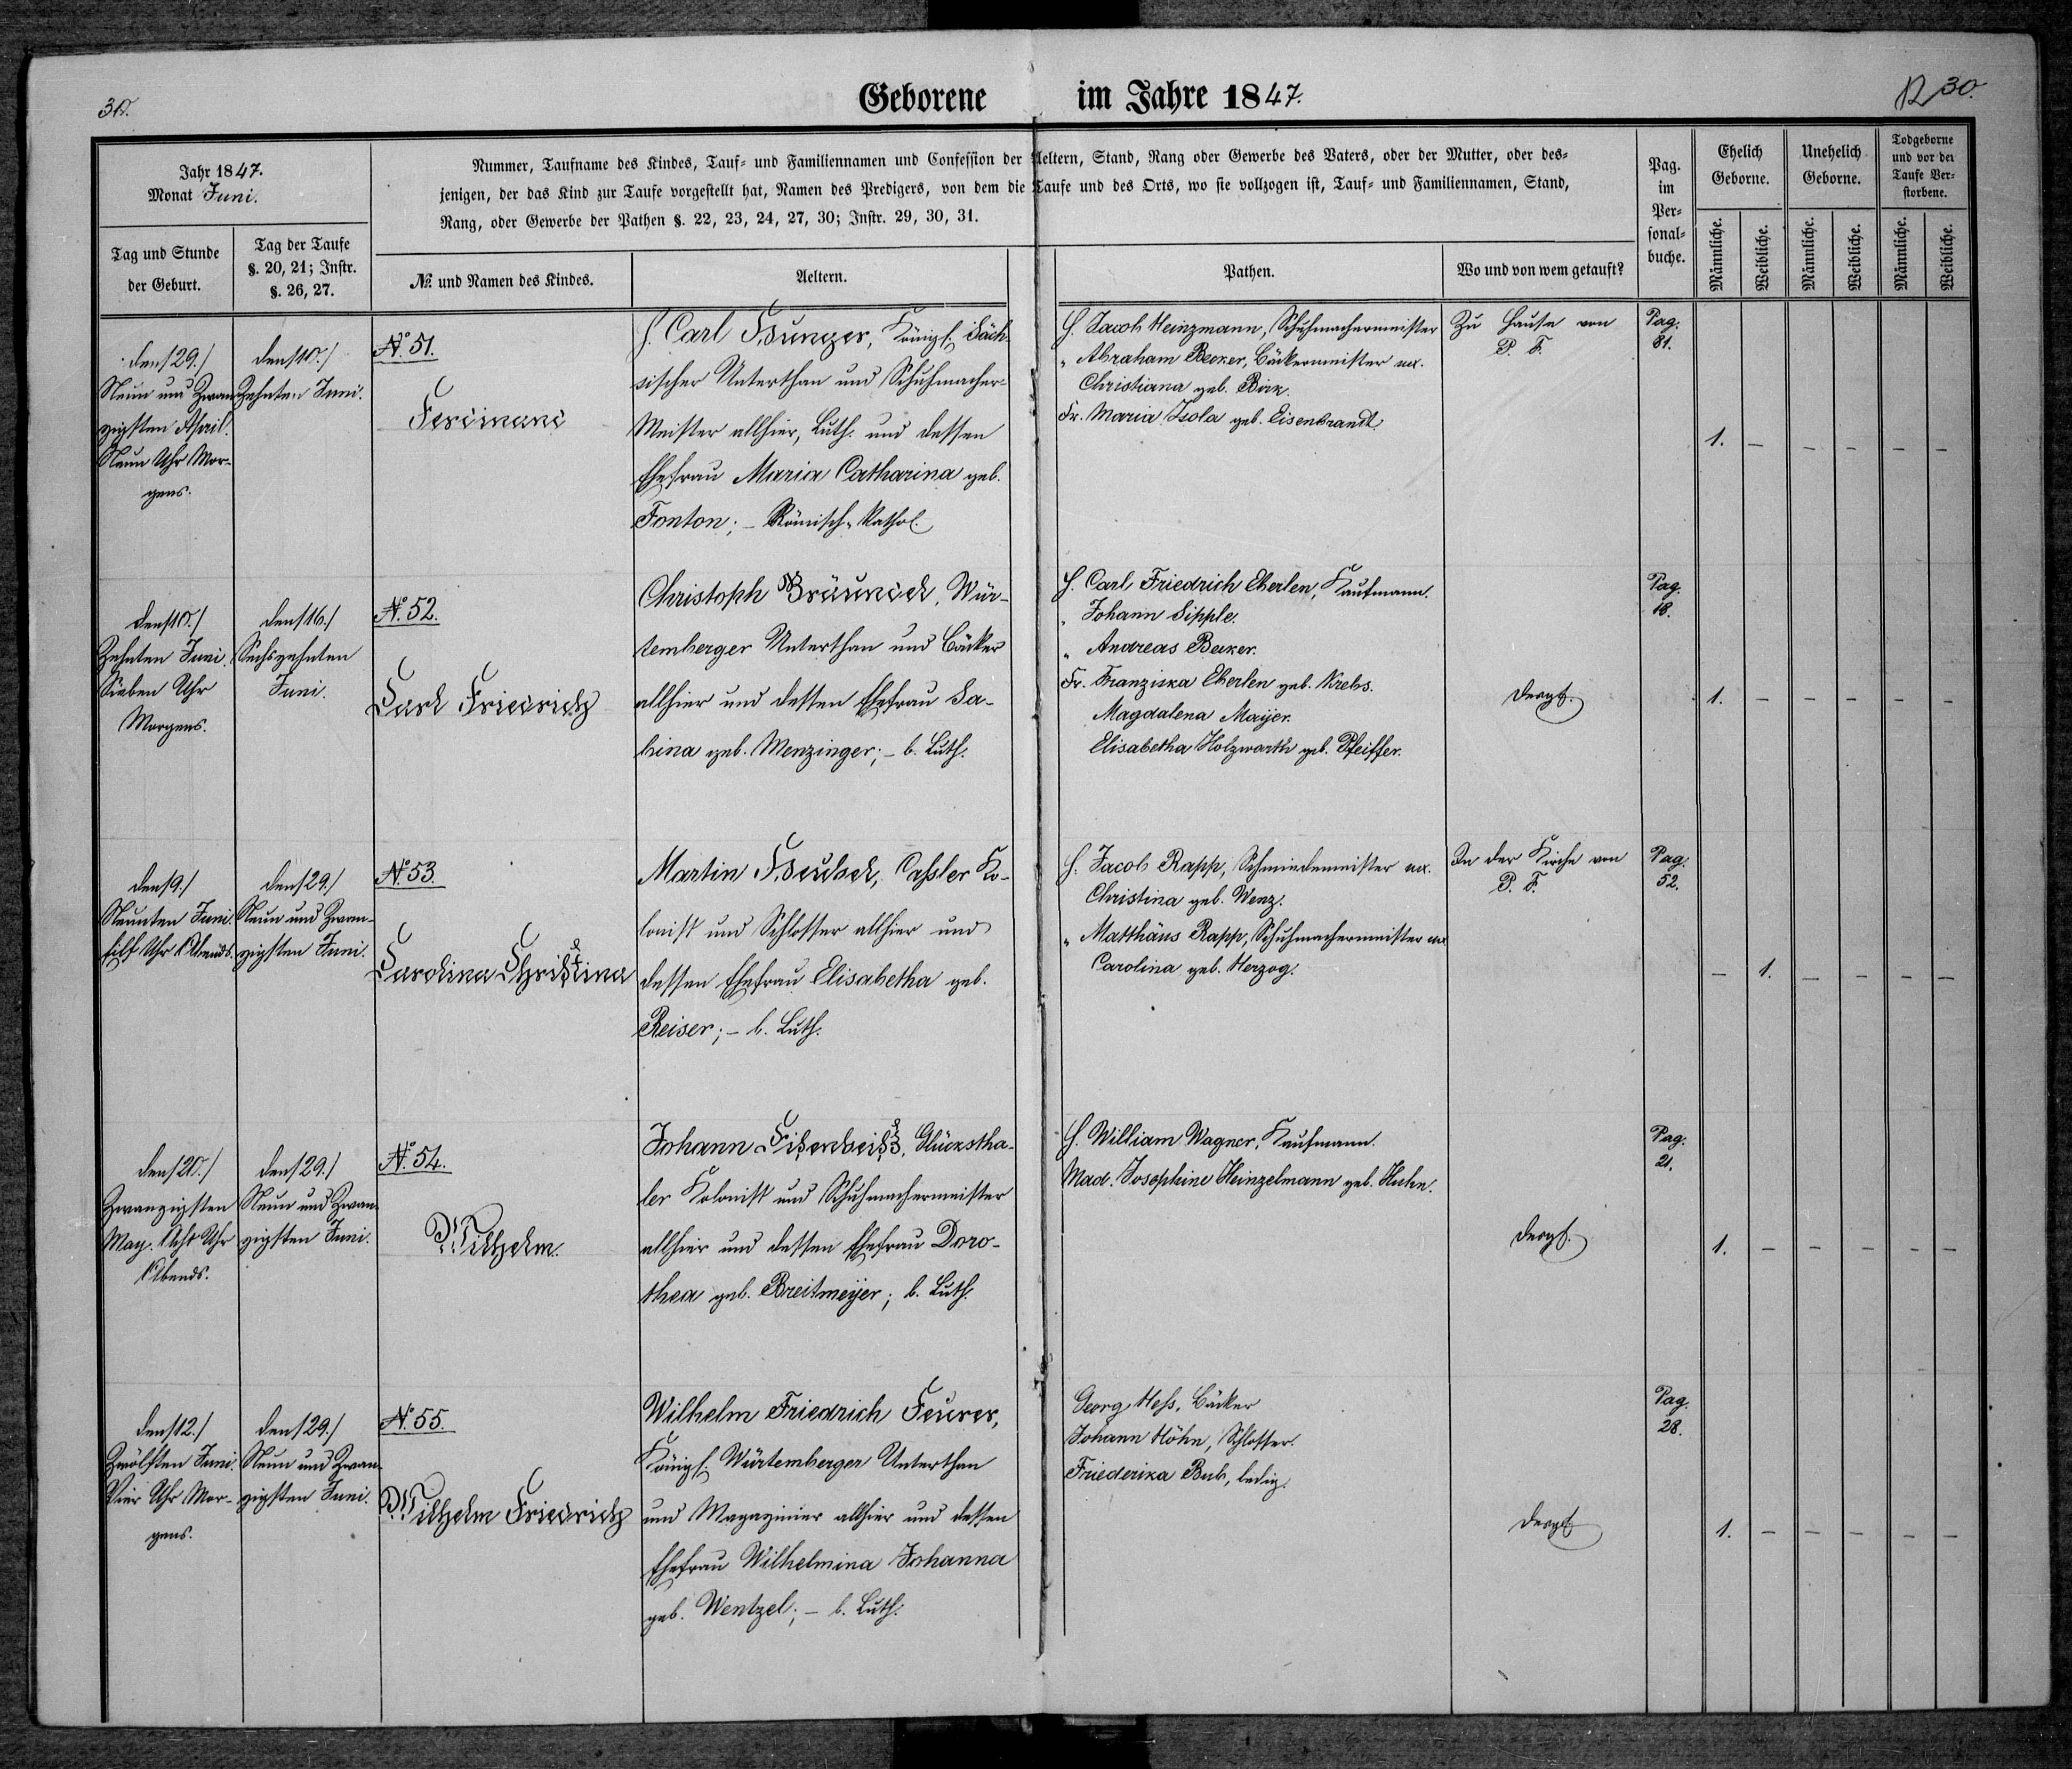 30.
Geborene im Jahre 1847.
30.
Jahr 1847.
Monat Juni.
Nummer, Taufname des Kindes, Tauf- und Familiennamen und Confession der Aeltern, Stand, Rang oder Gewerbe des Vaters, oder der Mutter, oder des-
jenigen, der das Kind zur Taufe vorgestellt hat, Namen des Predigers, von dem die Taufe und des Orts, wo sie vollzogen ist, Tauf- und Familiennamen, Stand,
Rang, oder Gewerbe der Pathen §. 22, 23, 24, 27, 30; Instr. 29, 30, 31.
Pag.
im
Per-
sonal-
buche.
Ehelich
Geborne.
Unehelich
Geborne.
Todgeborne
und vor der
Taufe Ver-
storbene.
Tag und Stunde
der Geburt.
Tag der Taufe
§. 20, 21; Instr.
§. 26, 27.
№. und Namen des Kindes.
Aeltern.
Pathen.
Wo und von wem getauft?
Männliche.
Weibliche.
Männliche.
Weibliche.
Männliche.
Weibliche.
den /29./
Neun und Zwan-
zigsten April.
Neun Uhr Mor-
gens.
den /10./
Zehnten Juni.
No. 51.
Ferdinand
H. Carl Königl. Säch-
sischer Unterthan und Schuhmacher-
Meister allhier, Luth. und dessen
Ehefrau Maria Catharina geb.
Fonton; – Römisch-Kathol.
H. Jacob Heinzmann, Schuhmachermeister
" Abraham Becker, Bäckermeister ux.
Christiana geb. Birk.
Fr. Maria Isola geb. Eisenbrandt.
Zu Hause von
P. F.
Pag.
81.
1. – – – – –
den /10./
Zehnten Juni.
Sieben Uhr
Morgens.
den /16./
Sechszehnten
Juni.
No. 52.
Carl Friedrich
Christoph Bräunich, Wür-
temberger Unterthan und Bäcker
allhier und dessen Ehefrau Sa-
bina geb. Menzinger; – b. Luth.
H. Carl Friedrich Eberlen, Kaufmann.
" Johann Sipple.
" Andreas Becker.
Fr. Franziska Eberlen geb. Krebs.
Magdalena Mayer.
Elisabetha Holzwarth geb. Pfeiffer.
Dergl.
Pag.
18.
1. – – – – –
den /9./
Neunten Juni.
Eilf Uhr Abends.
den /29./
Neun und Zwan-
zigsten Juni.
No. 53.
Carolina Christina
Martin Cassler Ko-
lonist und Schlosser allhier und
dessen Ehefrau Elisabetha geb.
Reiser; – b. Luth.
H. Jacob Rapp, Schmiedemeister ux.
Christina geb. Wenz.
" Matthäus Rapp, Schuhmachermeister ux.
Carolina geb. Herzog.
In der Kirche von
P. F.
Pag.
52.
– 1. – – – –
den /20./
Zwanzigsten
May. Acht Uhr
Abends.
den /29./
Neun und Zwan-
zigsten Juni.
No. 54.
Wilhelm.
Johann Glückstha-
ler Kolonist und Schuhmachermeister
allhier und dessen Ehefrau Doro-
thea geb. Breitmeyer; b. Luth.
H. William Wagner, Kaufmann.
Mad. Josephine Heinzelmann geb. Huhn.
Dergl.
Pag.
21.
1. – – – – –
den /12./
Zwölften Juni.
Vier Uhr Mor-
gens.
den /29./
Neun und Zwan-
zigsten Juni.
No. 55.
Wilhelm Friedrich
Wilhelm Friedrich Feurer,
Königl. Würtemberger Unterthan
und Magazinier allhier und dessen
Ehefrau Wilhelmina Johanna
geb. Wentzel; – b. Luth.
Georg Hess, Bäcker
Johann Höhn, Schlosser.
Friederika Bub, ledig.
Dergl.
Pag.
28.
1. – – – – –